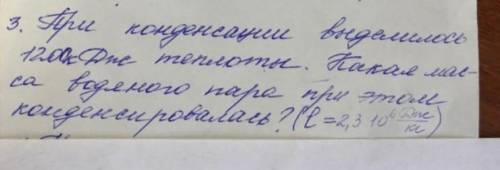 3. При конденсации выделилось
1200кДж теплоты. Какая мас-
са водяного пара при этом
конденсировалась? (L=2,3 10⁶ Дж/кг)